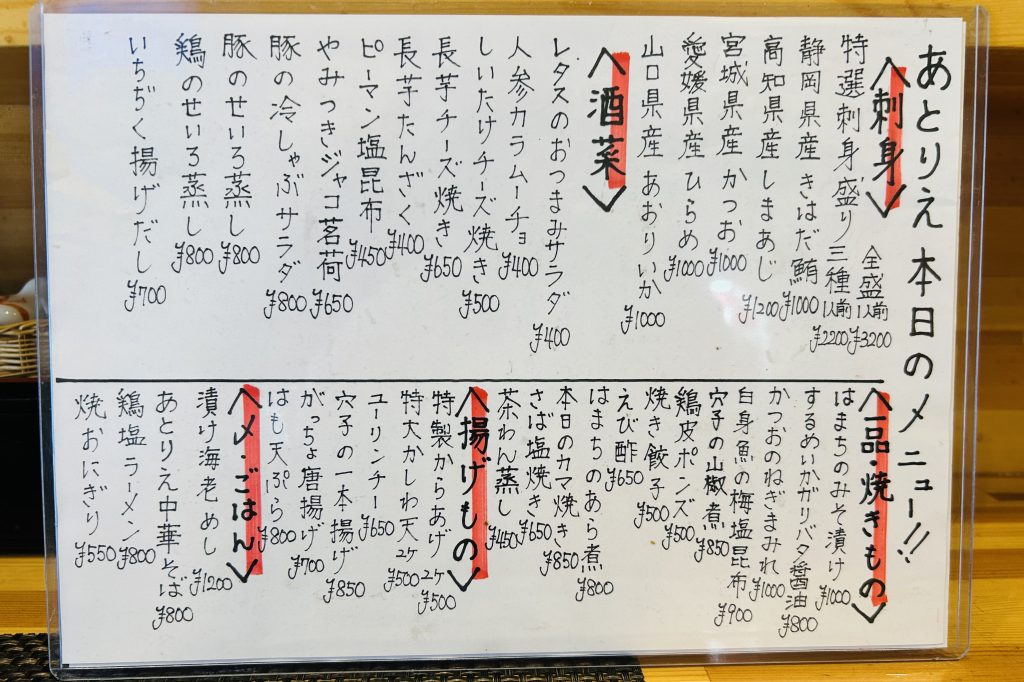 あとりえ 本日のメニュー!!
〈刺身〉
特選刺身盛り 全盛 1人前 ¥3200
三種 1人前 ¥2200
静岡県産 きはだ鮪 ¥1000
高知県産 しまあじ ¥1200
宮城県産 かつお ¥1000
愛媛県産 ひらめ ¥1000
山口県産 あおりいか ¥1000
〈酒菜〉
レタスのおつまみサラダ ¥400
人参カラムーチョ ¥400
しいたけチーズ焼き ¥500
長芋チーズ焼き ¥650
長芋たんざく ¥400
ピーマン塩昆布 ¥450
やみつきジャコ茗荷 ¥650
豚の冷しゃぶサラダ ¥800
豚のせいろ蒸し ¥800
鶏のせいろ蒸し ¥800
いちぢく揚げだし ¥700
〈一品・焼きもの〉
はまちのみそ漬け ¥1000
するめいかガリバタ醤油 ¥800
かつおのねぎまみれ ¥1000
白身魚の梅塩昆布 ¥900
穴子の山椒煮 ¥850
鶏皮ポンズ ¥500
焼き餃子 ¥500
えび酢 ¥650
はまちのあら煮 ¥800
本日のカマ焼き ¥850
さば塩焼き ¥650
茶わん蒸し ¥450
〈揚げもの〉
特製からあげ 2ケ ¥500
特大かしわ天 2ケ ¥500
ユーリンチー ¥650
穴子の一本揚げ ¥850
がっちょ唐揚げ ¥700
はも天ぷら ¥800
〈〆・ごはん〉
漬け海老めし ¥1200
あとりえ中華そば ¥800
鶏塩ラーメン ¥800
焼おにぎり ¥550